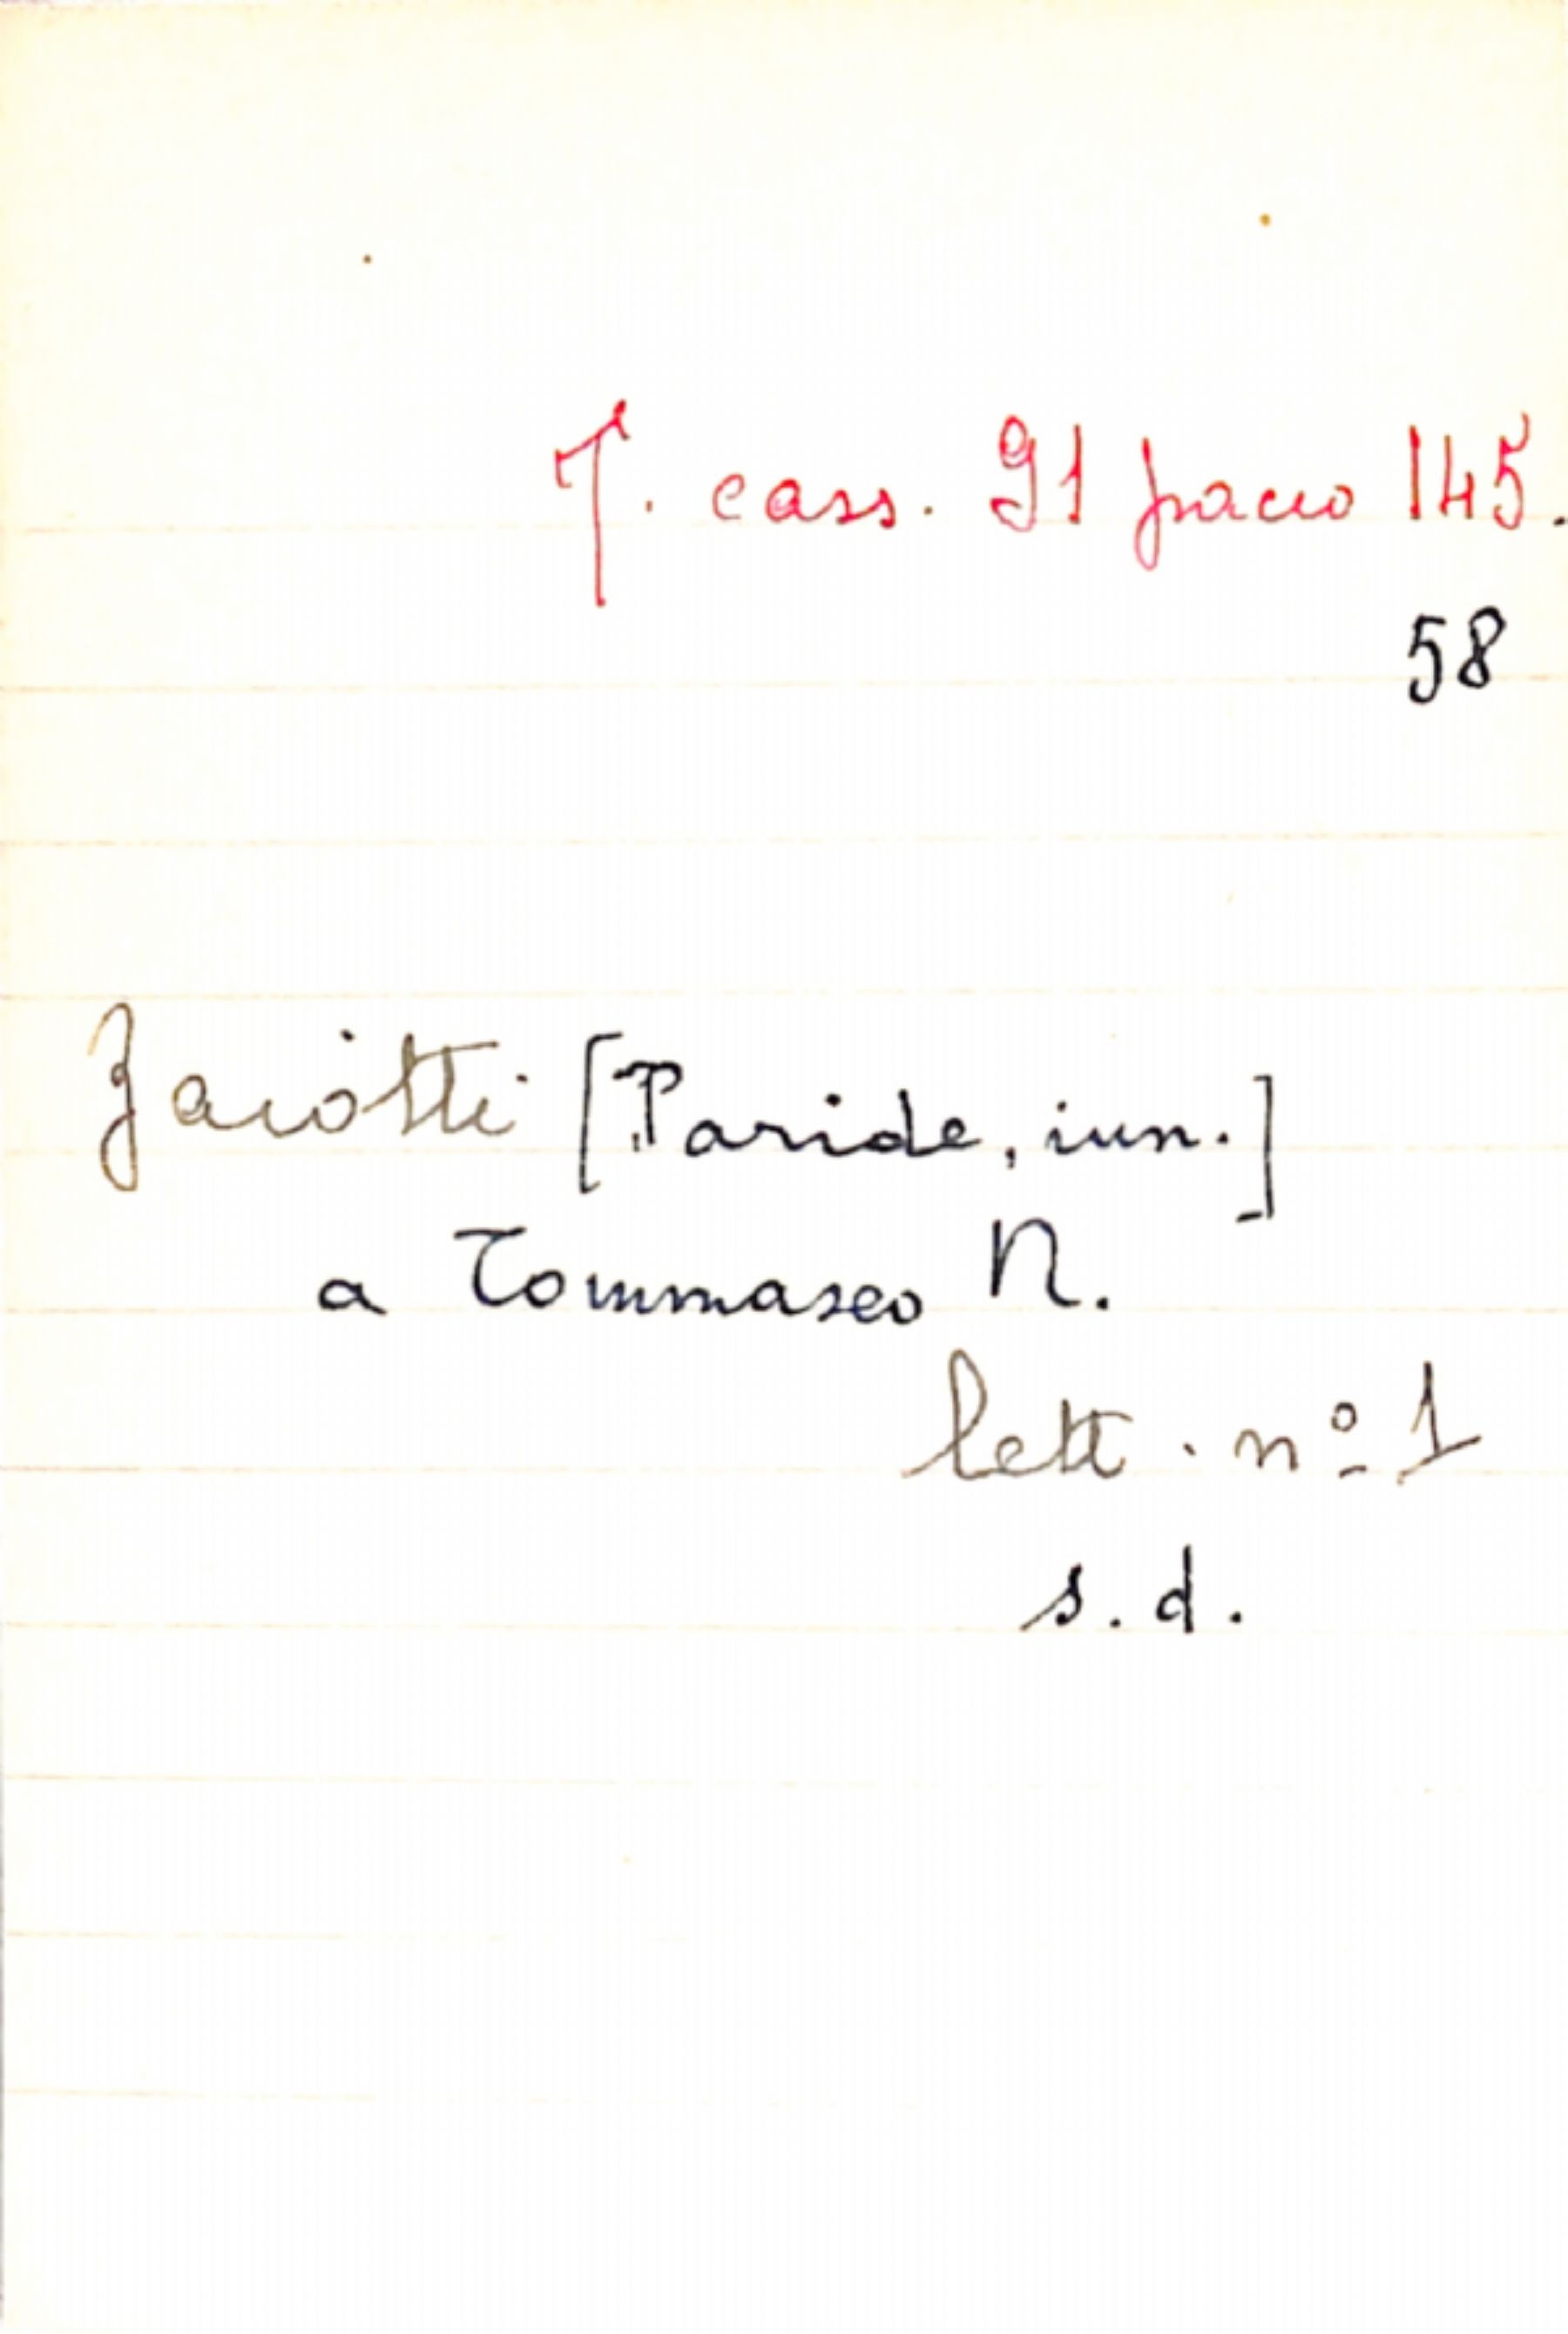 T. cass. 91 pacco 145.
58
Zaiotti [Paride, iun.]
a Tommaseo N.
lett. nº 1
s. d.